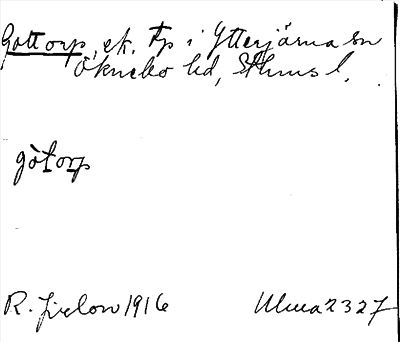 Gottorp, ek. tp i Ytterjärna sn
Öknebo hd, Sthms l.
gòtorp
R. 1916 Ulma 2327